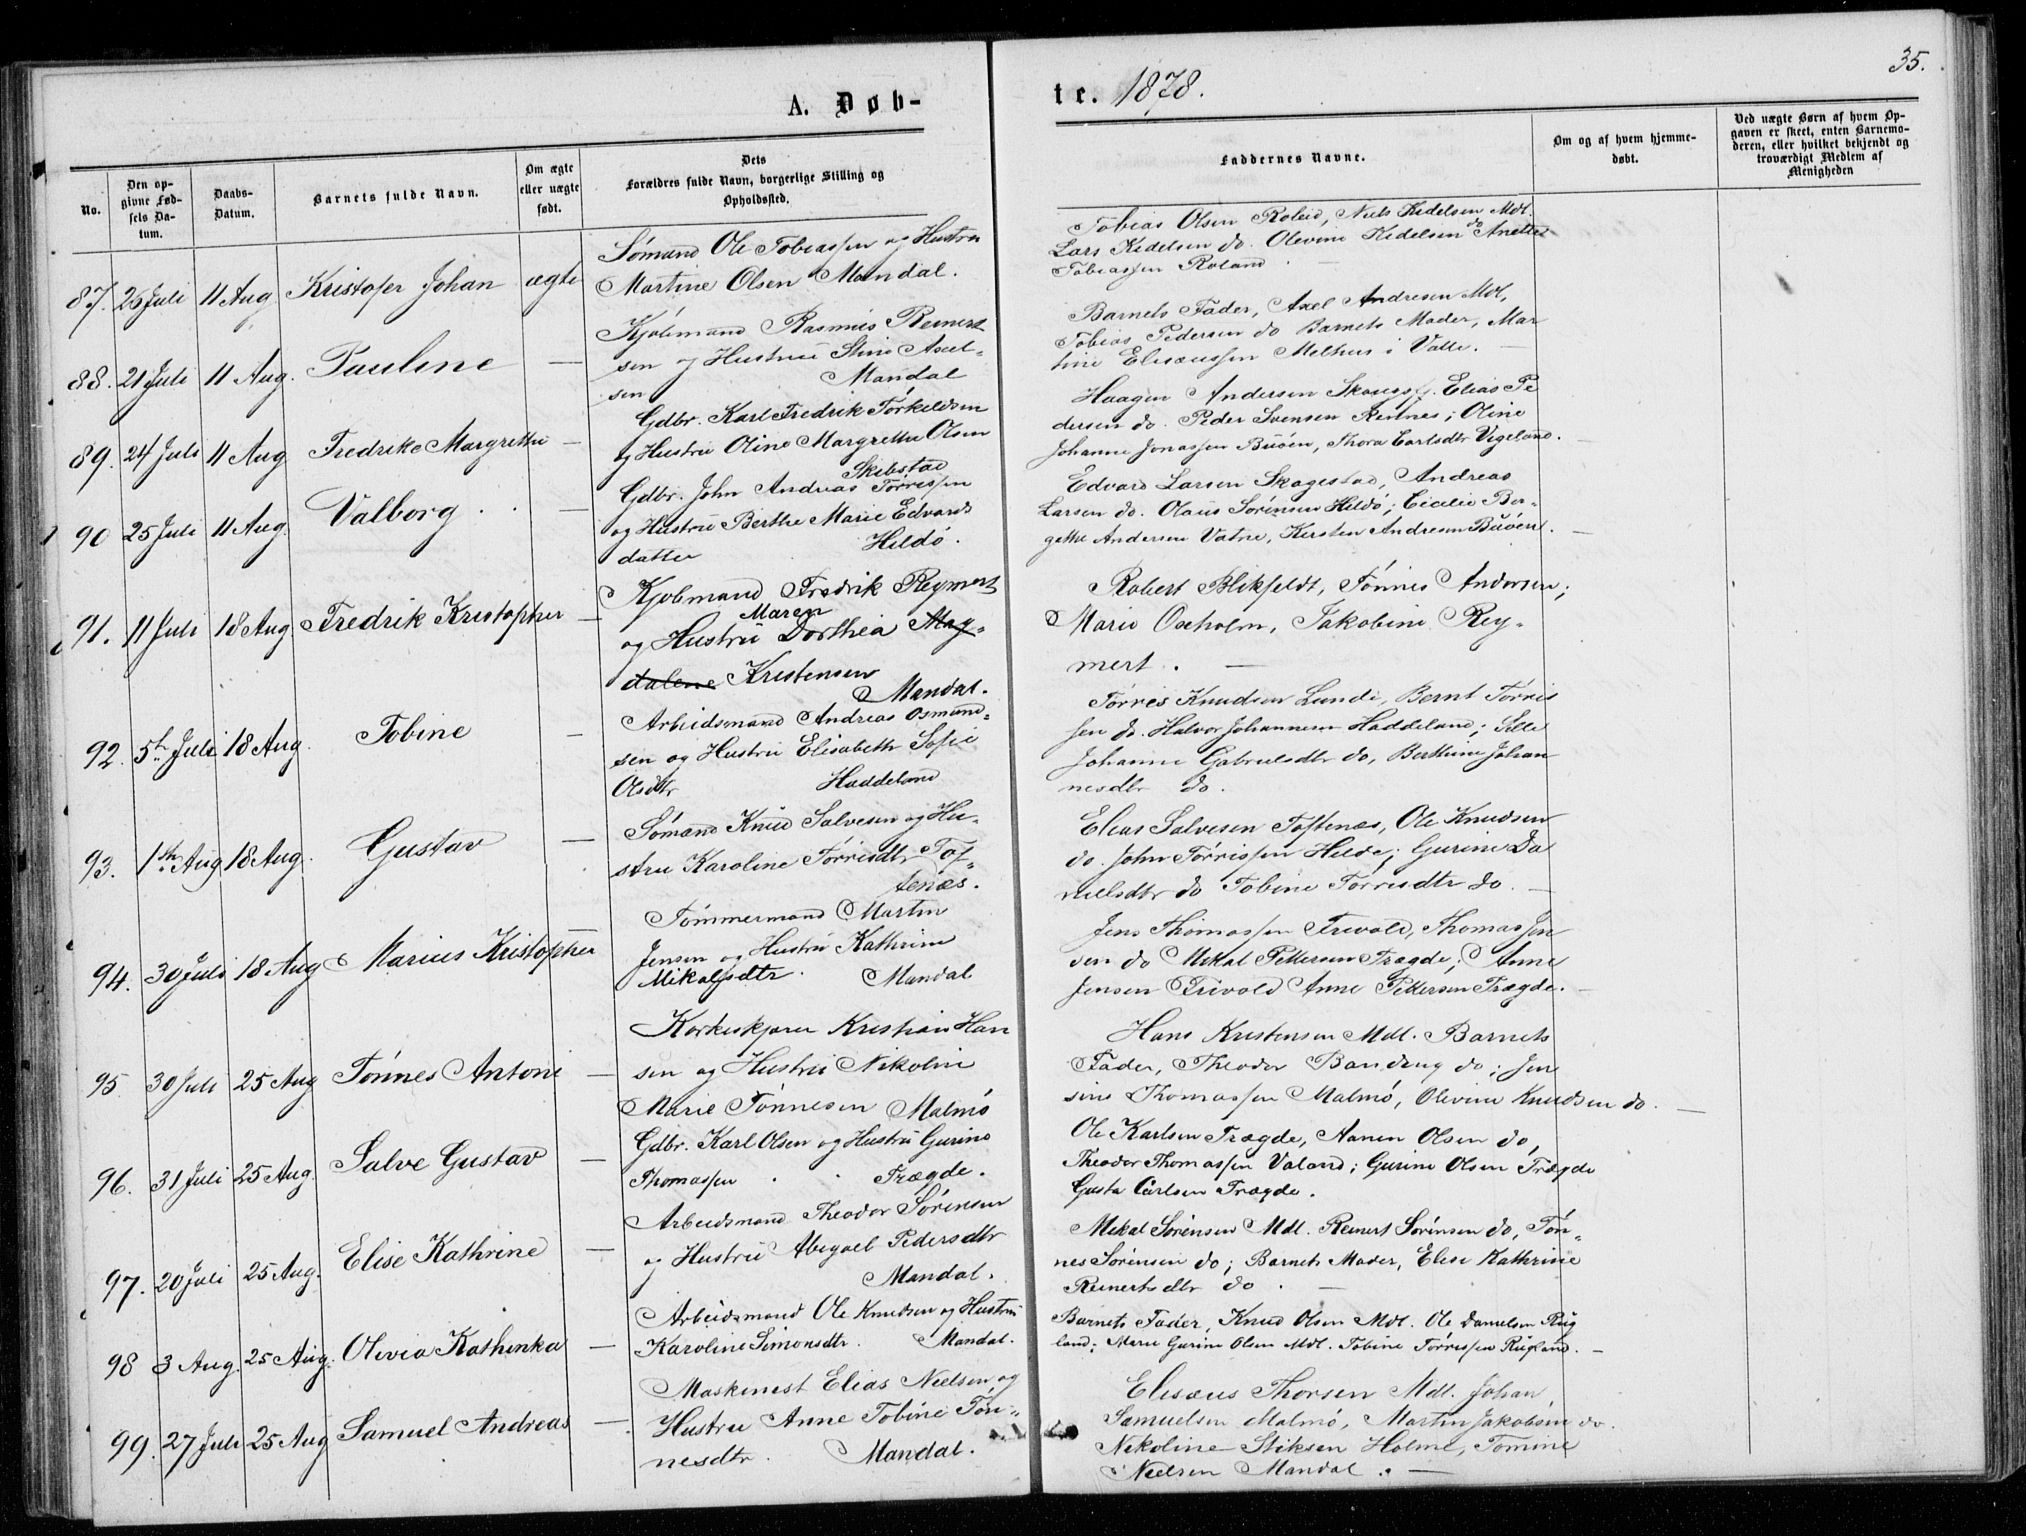 35.
A. Døb-
te. 1878.
No.
Den op-
givne Fød-
sels Da-
tum.
Daabs-
Datum.
Barnets fulde Navn.
Om ægte
eller uægte
født.
Dets
Forældres fulde Navn, borgerlige Stilling og
Opholdssted.
Faddernes Navne.
Om og af hvem hjemme-
døbt.
Ved uægte Børn af hvem Op-
gaven er skeet, enten Barnemo-
deren, eller hvilket bekjendt og
troværdigt Medlem af
Menigheden
87. 26 Juli 11 Aug Kristofer Johan ægte
Sømand Ole Tobiassen og Hustru
Martine Olsen Mandal.
Tobias Olsen Niels Kedelsen Mdl.
Lars Kedelsen do. Olevine Kedelsen do Anette
Tobiassen Roland. —
88. 21 Juli 11 Aug. Pauline —
Kjøbmand Rasmus Reinert
sen og Hustru Stine Axel-
sen Mandal
Barnets Fader, Axel Andresen Mdl,
Tobias Pedersen do Barnets Moder, Mar
tine Eliseussen Melhus i Valle. —
89. 24 Juli 11 Aug Fredrikke Margrethe —
Gdbr. Karl Fredrik Torkeldsen
og Hustru Oline Margrethe Olsen
Skibstad
Haagen Andersen Elias Pe
dersen do. Peder Svensen Rennes; Oline
Johanne Jonassen Buøen, Thora Carlsdtr Vigeland. —
90 25 Juli 11 Aug. Valborg. —
Gdbr. John Andreas Tørressen
og Hustru Berthe Marie Edvards
datter Hildø.
Edvard Larsen Skagestad, Andreas
Larsen do. Olaus Sørensen Hildø; Cicelie Ber-
gethe Andersen Vatne, Kersten Andresen Buøen. —
91. 11 Juli 18 Aug. Fredrik Kristopher —
Kjøbmand Fredrik Reymert
Maren
og Hustru Dorthea Mag-
dalene Kristensen
Mandal.
Robert Blikfeldt, Tønnes Andersen;
Marie Oxholm, Jakobine Rey-
mert. —
92. 5te Juli 18 Aug. Tobine —
Arbeidsmand Andreas Osmund-
sen og Hustru Elisabeth Sofie
Olsdtr Haddeland
Tørres Knudsen Lunde, Bernt Tørris
sen do. Halvor Johannesen Haddeland; Sille
Johanne Gabrielsdtr do, Berthine Johan
nesdtr do.
93. 1ste Aug 18 Aug. Gustav —
Sømand Knud Salvesen og Hu-
stru Karoline Tørrisdtr Tof-
tenæs.
Elias Salvesen Toftenæs, Ole Knudsen
do. John Tørrissen Hilde; Gurine Da
nielsdtr do Tobine Tørresdtr do. —
94. 30 Juli 18 Aug Marius Kristopher
Tømmermand Martin
Jensen og Hustru Kathrine
Mikalsdtr. Mandal
Jens Thomassen Frivold, Thomas Jen
sen do Mikal Pettersen Trægde; Anne
Jensen Frivold Anne Pettersen Trægde. —
95 30 Juli 25 Aug Tønnes Antoni —
Korkeskjærer Kristian Han
sen og Hustru Nikoline
Marie Tønnesen Malmø
Hans Kristensen Mdl. Barnets
Fader, Theodor do; Jen
sine Thomassen Malmø, Olevine Knudsen do. —
96. 31 Juli 25 Aug. Salve Gustav —
Gdbr. Karl Olsen og Hustru Gurine
Thomassen Trægde.
Ole Karlsen Trægde, Aanen Olsen do,
Theodor Thomassen Valand; Gurine Olsen Trægde
Gusta Carlsen Trægde.
97. 20 Juli 25 Aug. Elise Kathrine —
Arbeidsmand Theodor Sørensen
og Hustru Abigael Pedersdtr
Mandal.
Mekal Sørensen Mdl. Reinert Sørensen do, Tøn-
nes Sørensen do; Barnets Moder, Elise Kathrine
Reinertsdtr do. —
98 3 Aug. 25 Aug. Olivia Kathinka —
Arbeidsmand Ole Knudsen og Hustru
Karoline Simonsdtr. Mandal.
Barnets Fader, Knud Olsen Mdl. Ole Danielsen Rug
land; Marie Gurine Olsen Mdl. Tobine Tørressen Rugland. —
99. 27 Juli 25 Aug Samuel Andreas —
Maskinist Elias Nielsen og
Hustru Anne Tobine Tøn-
nesdtr. Mandal.
Eliseus Thorsen Mdl. Johan
Samuelsen Malmø, Martin Jakobsen do.
Nikoline Holme, Tomine
Nielsen Mandal. —